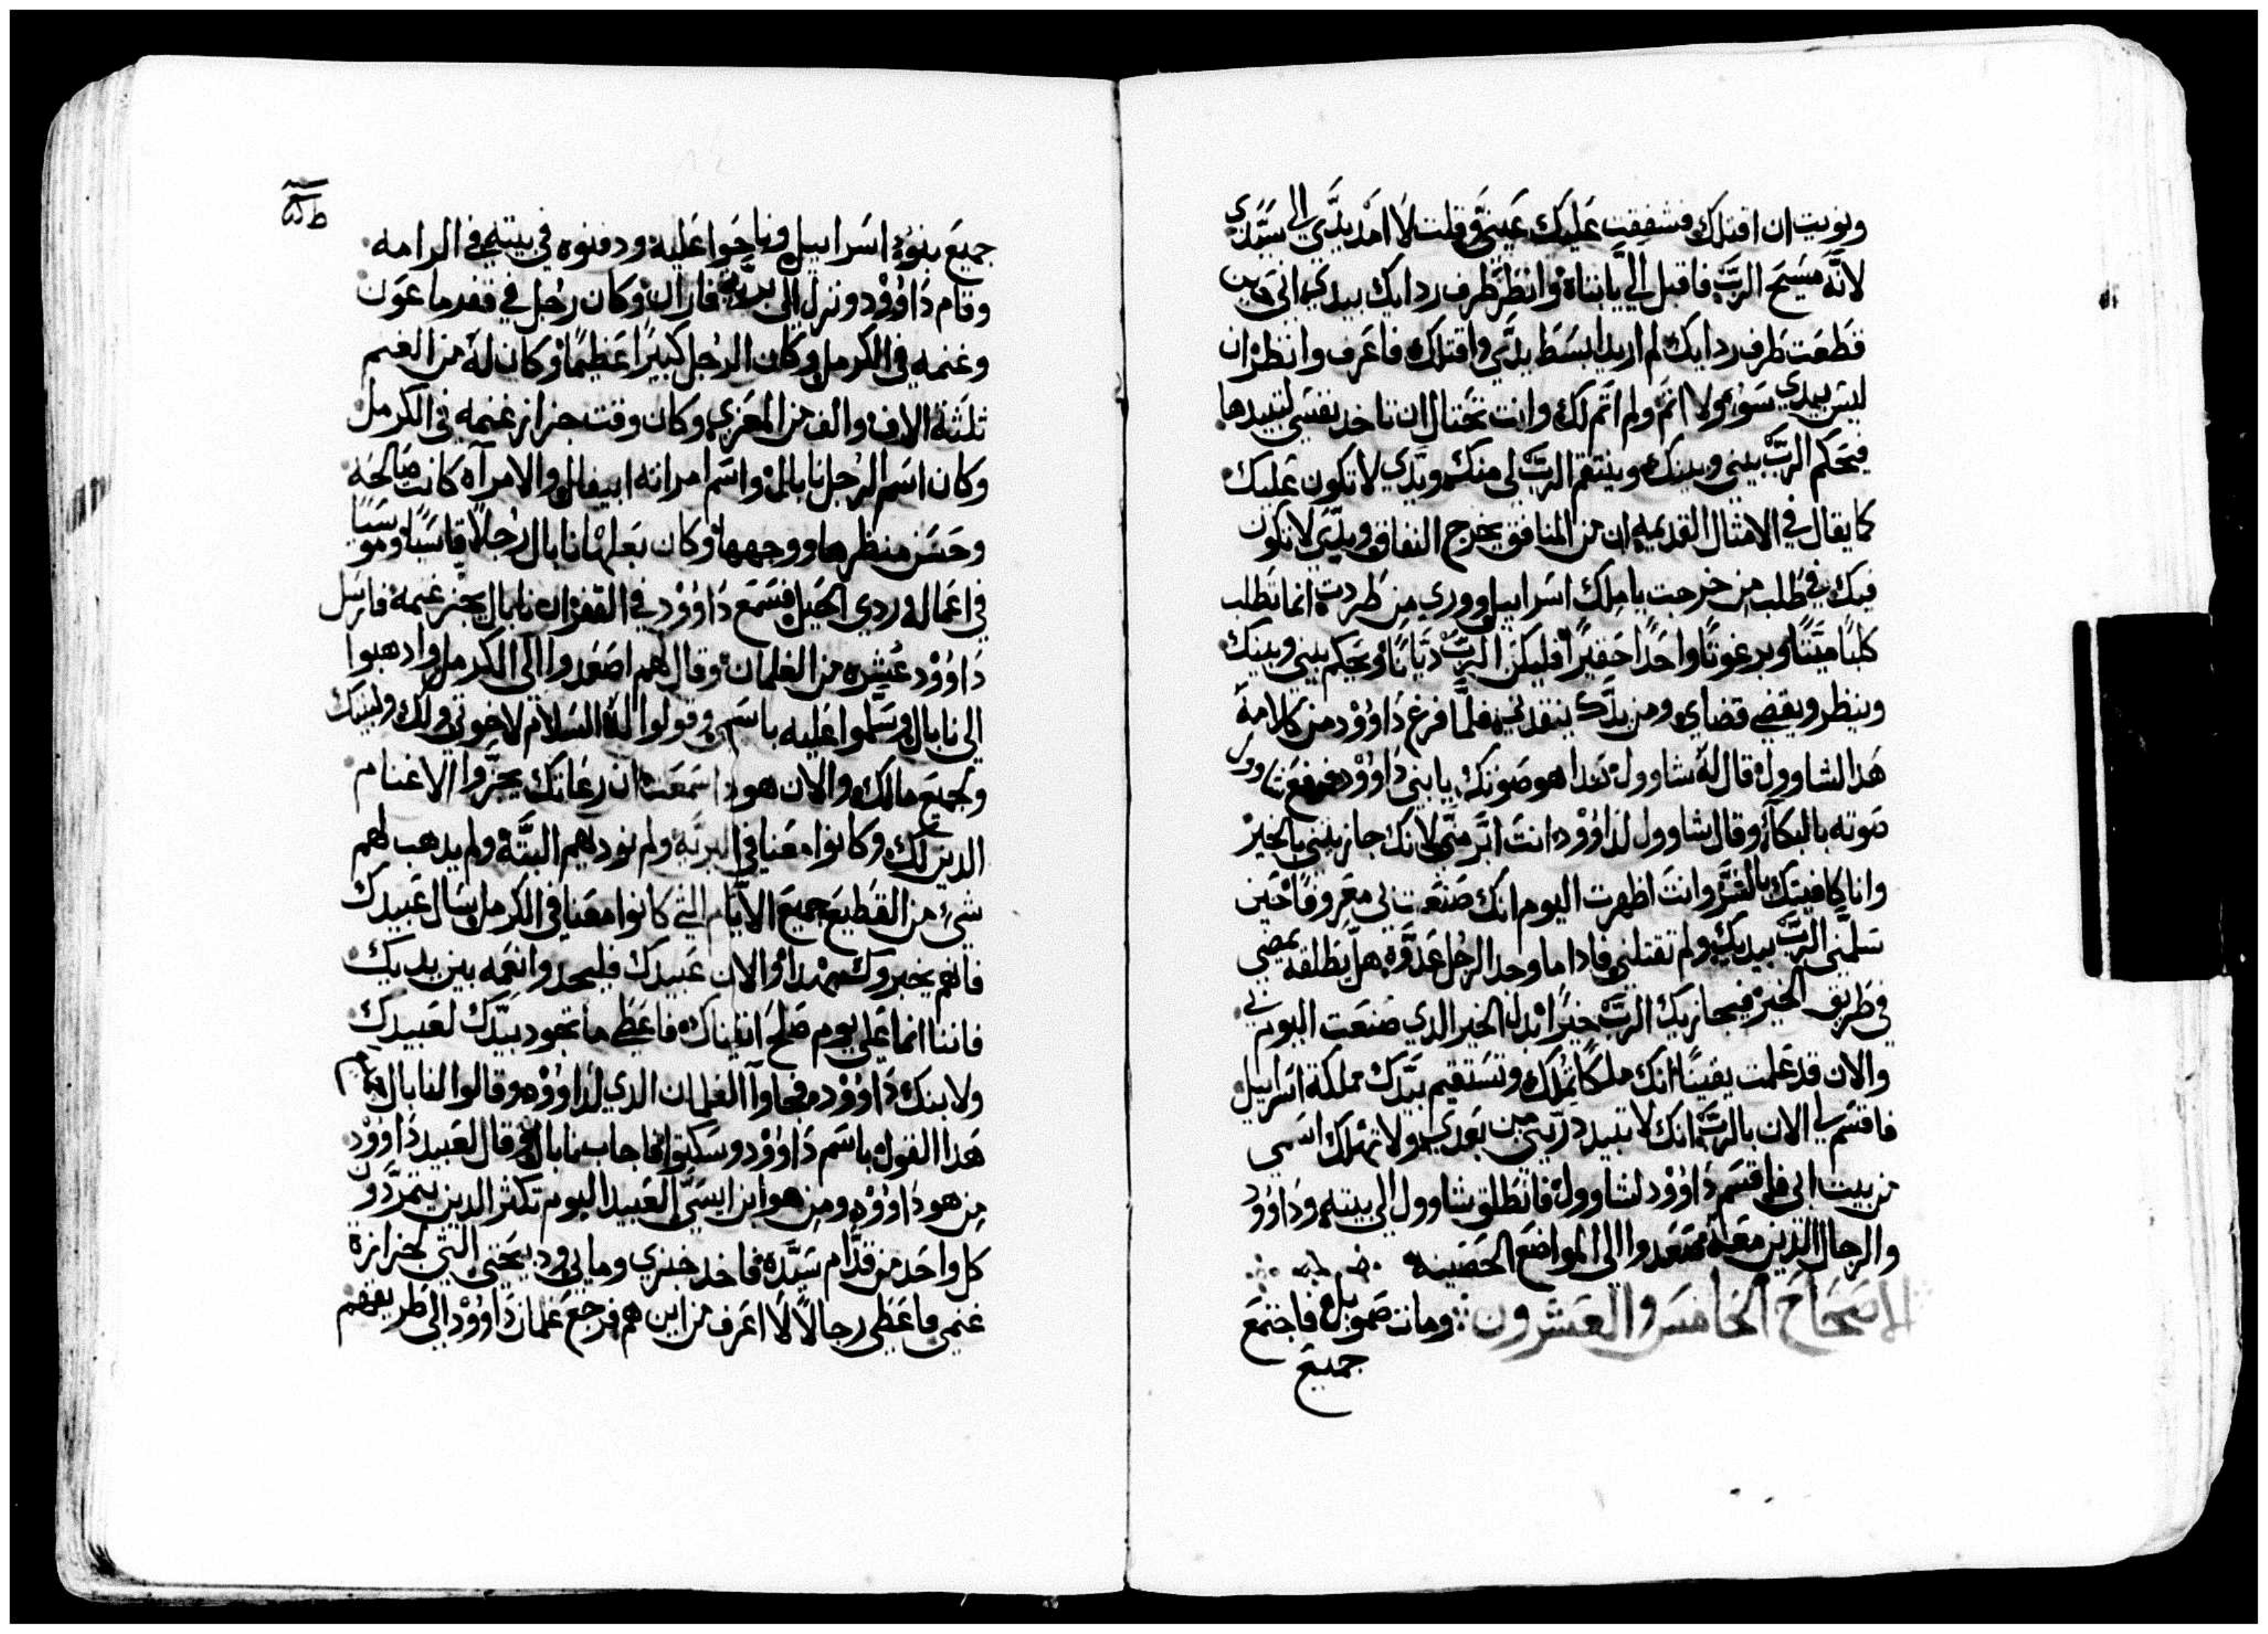 ونويت ان اقتلك فشفقت عليك عينيَّ وقلت لا امد يدَّي الى سيَّدي
لانَّه مسيح الربَّ فاقبل اليَّ يابتاه وانظر طرف ردايك بيدي انى حين
قطعت طرف ردايك لم اريد ابسط يدَّي واقتلك فاعرف وانظر ان
ليس بيدي سوء ولا اثم ولم اثم لك وانت تحتال ان تاخد نفسي لتبيدها
فيحكم الربَّ بيني وبينك وينتقم الربَّ لى منك ويدَّي لا تكون عليك
كما يقال في الامثال القديمه ان من المنافق يخرج النفاق ويدَّي لا تكون
فيك في طلب من خرجت ياملك اسراييل ووري من طردت انما تطلب
كلبًا ميتًا وبرغوتًا واحدًا حقيرًا فليكن الربَّ ديَّانًا ويحكم بيني وبينك
وينظر ويقضي قضاي ومن يدَّك ينقدني فلمَّا فرغ داوُوْد من كلامه
هدا لشاوول قال له شاوول هدا هو صوتك يا بني داوُوْد فرفع شاوول
صوته بالبكاء وقال شاوول لداوُوْد انت ابَّر منَّي لانك جازيتني بالخير
وانا كافيتك بالشَّر وانت اظهرت اليوم انك صنعت لي معروفًا حين
سلمَّني الربَّ بيديك ولم تقتلني فادا ما وجد الرجل عدَّوه هل يطلقه يمضي
في طريق الخير فيجازيك الربَّ خيرًا بدل الخير الدي صنعت اليوم لي
والان قد علمت يقينًا انك ملكًا تملك وتستقيم بيَّدك مملكة اسراييل
فاقسم لي الان بالربَّ انك لا تبيد درَّيتي من بعدي ولا تهلك اسمي
من بيت ابي فاقسم داوُوْد لشاوول فانطلق شاوول الى بيته وداوُوْد
والرجال الدين معه صعدوا الى المواضع الحصينه
الاصحاح الخامس والعشرون ومات صمويل فاجتمع
جميع
جميع بنوُا اسراييل وناحوا عليه ودفنوه في بيته في الرامه
وقام داوُوْد ونزل الى بريَّة فاران وكان رجل في قفر ماعون
وغنمه في الكرمل وكان الرجل كبيرًا عظيمًا وكان له من الغنم
ثلثة الاف والف من المعزي وكان وقت جزاز غنمه في الكرمل
وكان اسم الرجل نابال واسم امراته ابيغال والامرآه كانت صالحه
وحسن منظرها ووجهها وكان بعلها نابال رجلًا قاسيًا وموسيًا
في اعماله وردي الجبل فسمع داوُوْد في القفر ان نابال يجز غنمه فارسل
داوُوْد عشره من الغلمان وقال لهم اصعدوا الى الكرمل وادهبوا
الى نابال وسلَّموا عليه باسمي وقولوا له السلام لاخوتي ولك ولبيتك
ولجميع مالك والان هودا سمعت ان رعاتك يجزَّوا الاغنام
الدين لك وكانوا معنا في البريَّه ولم نوديهم البتَّه ولم يدهب لهم
شيء من القطيع جميع الايَّام التي كانوا معنا في الكرمل سال عبيدك
فانهم يخبروك بهدا والان عبيدك فليجدوا نعمه بين يديك
فاننا انما على يوم صلح اتيناك فاعطي ما تجود بيَّدك لعبيدك
ولابنك داوُوْد فجاوآ الغلمان الدي لداوُوْد وقالوا لنابال
هدا القول باسم داوُوْد وسكتوا فاجاب نابال وقال لعبيد داوُوْد
من هو داوُوْد ومن هو ابن ايسَّى العبيد اليوم تكثر الدين يتمرَّدون
كل واحد من قدَّام سيَّده فاخد خبزي وماي ودبيحتي التي لجزازة
غنمي فاعطي رجالًا لا اعرف من اين هم فرجع غلمان داوُوْد الى طريقهم